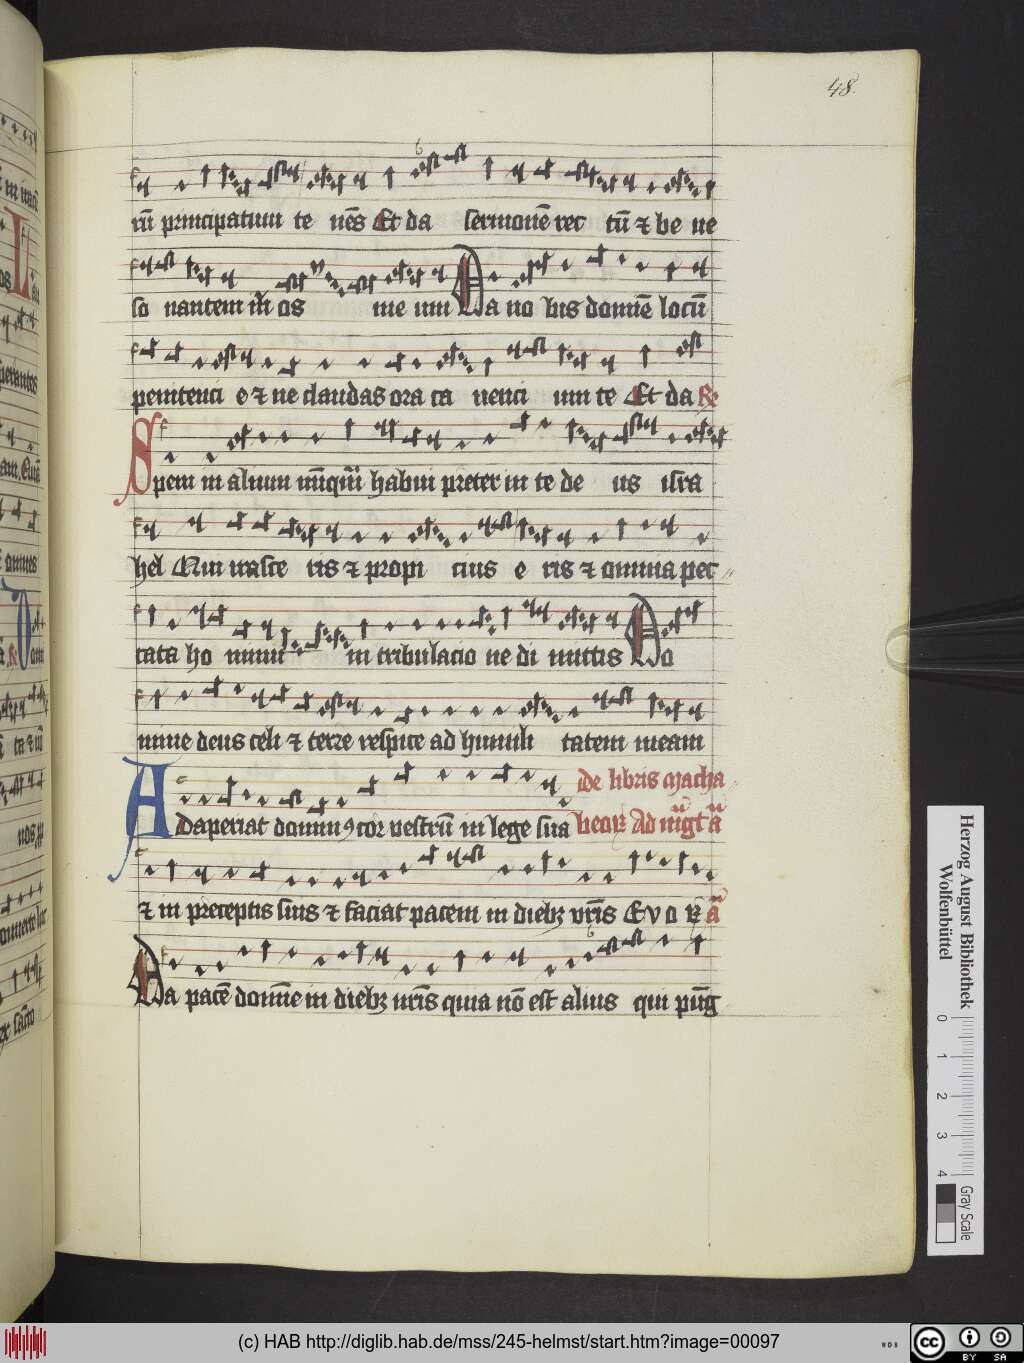 48.
rū principatum te nēs Et da sermonē rec tū ⁊ be ne
so nantem ī os me um Da no bis domīe locū
penitenci e ⁊ ne claudas ora ca nenci um te Et da Re
Spem in alium nūqm̄ habui preter in te de us isra
hel Qui irasce ris ⁊ propi cius e ris ⁊ omnia pec
cata ho minū in tribulacio ne di mittis Do
mine deus celi ⁊ terre respice ad humili tatem meam
De libris Macha
Adaperiat domin9 cor vestrū in lege sua beoꝝ Ad mgt̄ a
⁊ in preceptis suis ⁊ faciat pacem in diebꝫ vr̄is E v o v a
Da pacē domīe in diebꝫ nr̄is quia nō est alius qui pūg
Herzog August Bibliothek
Wolfenbüttel
0 1 2 3 4
Gray Scale
(c) HAB http://diglib.hab.de/mss/245-helmst/start.htm?image=00097
WDB
cc BY SA